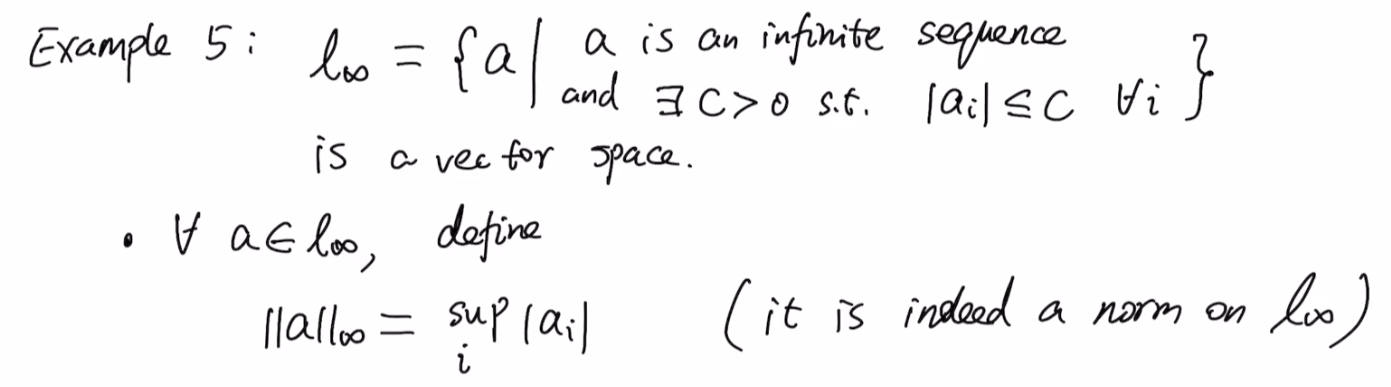 Example 5: l∞ = {a | a is an infinite sequence
and ∃ C>0 s.t. |ai| ≤ C ∀i }
is a vector space.
• ∀ a ∈ l∞, define
||a||∞ = sup |ai| (it is indeed a norm on l∞)
i